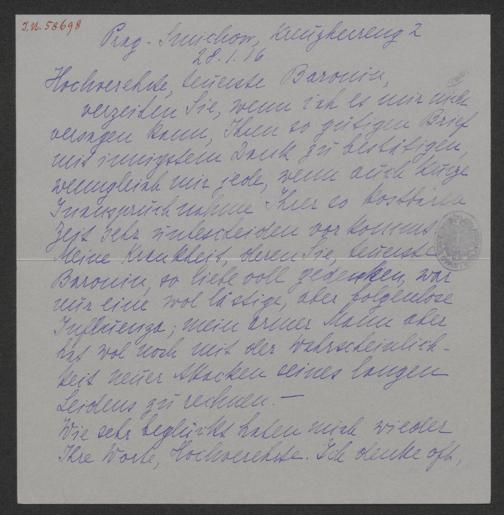 I.N. 58698
Prag-Smichow, Kreuzherreng 2
28.1.16
Hochverehrte, teuerste Baronin,
verzeihen Sie, wenn ich es mir nicht
versagen kann, Ihren so gütigen Brief
mit innigstem Dank zu bestätigen,
wenngleich mir jede, wenn auch kurze
Inanspruchnahme Ihrer so kostbaren
Zeit sehr unbescheiden vorkommt.
Meine Krankheit, deren Sie, teuerste
Baronin, so liebevoll gedenken, war
nur eine wol lästige, aber folgenlose
Influenza; mein armer Mann aber
hat wol noch mit der Wahrscheinlich-
keit neuer Attacken seines langen
Leidens zu rechnen. —
Wie sehr beglückt haben mich wieder
Ihre Worte, Hochverehrte. Ich denke oft,